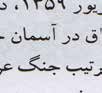 ریور ۱۳۵۹، د
ق در آسمان ج
رتیب جنگ عر